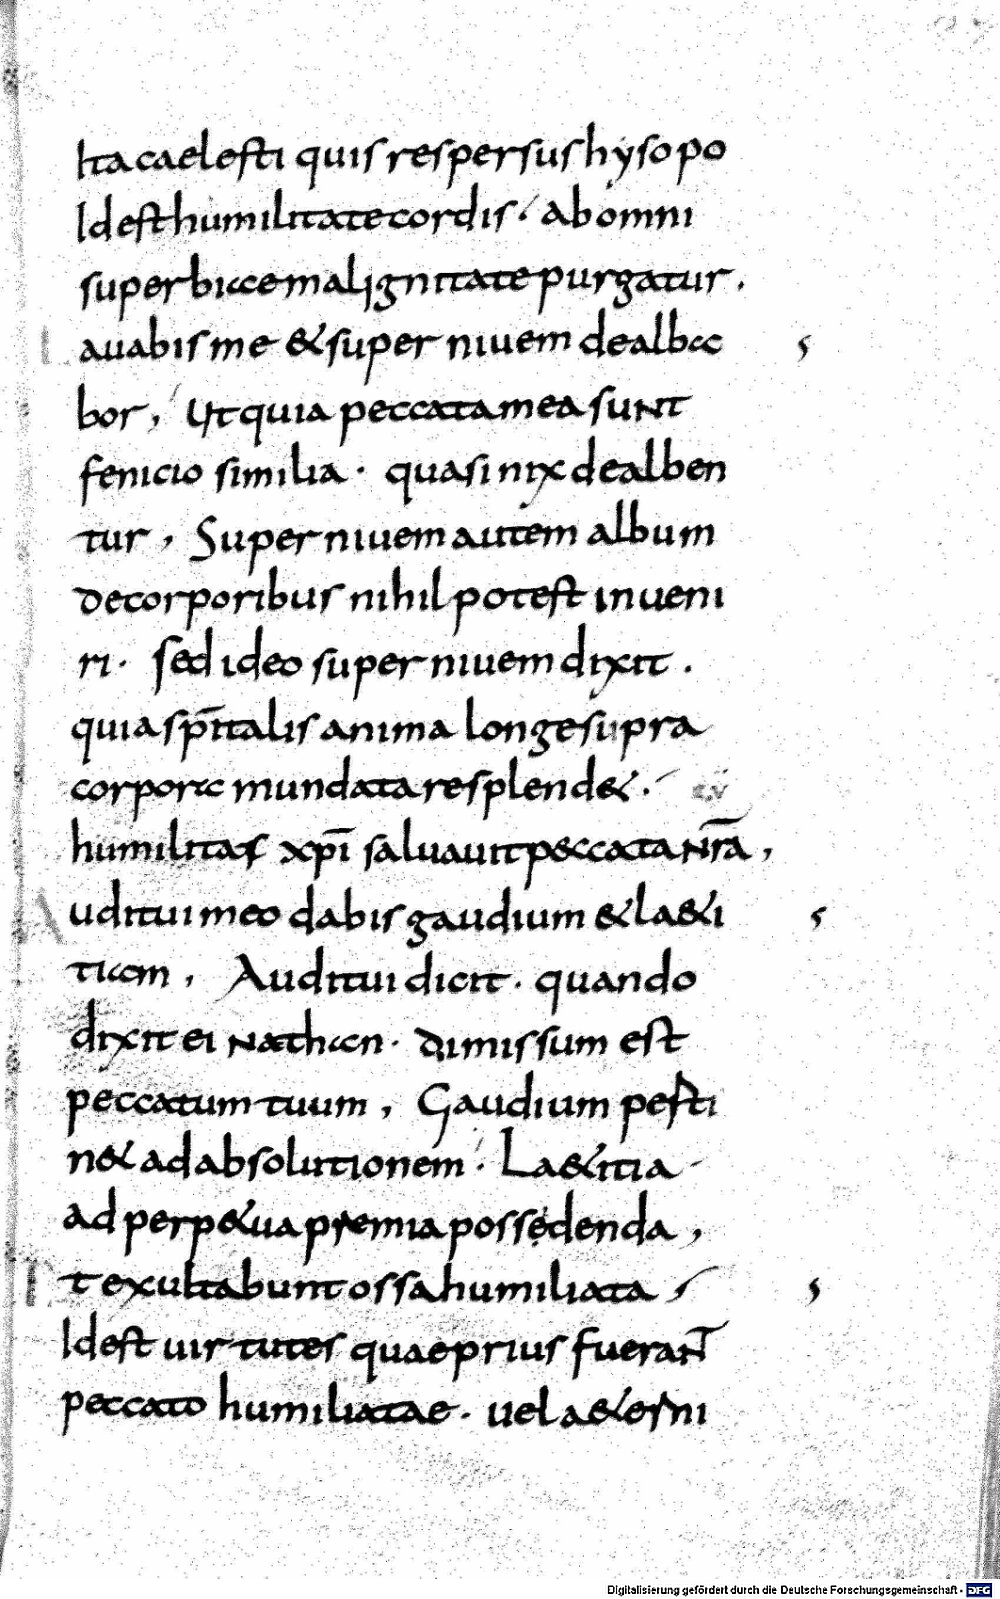 Ita caelesti quis respersus hysopo
Idest humilitate cordis. Ab omni
superbiae malignitate purgatur.
Lauabis me & super niuem dealba
bor, Ut quia peccata mea sunt
fenicio similia. quasi nix dealben
tur, Super niuem autem album
de corporibus nihil potest inueni
ri. sed ideo super niuem dixit.
quia sp̄italis anima longe supra
corpore mundata resplend&.
humilitas xp̄i saluauit peccata nr̄a,
Auditui meo dabis gaudium & la&i
tiam, Auditui dicit. quando
dixit ei nathan. Dimissum est
peccatum tuum, Gaudium pesti
n& ad absolutionem. La&itia
ad perp&ua premia possedenda,
Et exultabunt ossa humiliata
Idest uirtutes quae prius fueran̄t
peccato humiliatae. uel a&erni
Digitalisierung gefördert durch die Deutsche Forschungsgemeinschaft - DFG